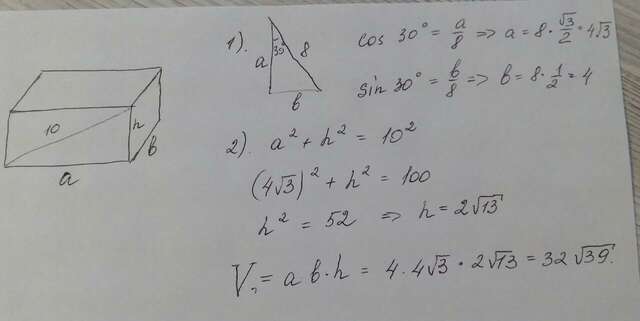 10
h
b
a
1). a 30° 8 b
cos 30° = a/8 => a = 8 · √3/2 = 4√3
sin 30° = b/8 => b = 8 · 1/2 = 4
2). a² + h² = 10²
(4√3)² + h² = 100
h² = 52 => h = 2√13
V = a b · h = 4 · 4√3 · 2√13 = 32√39.